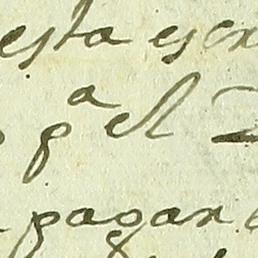 esta es
pª el
pagar